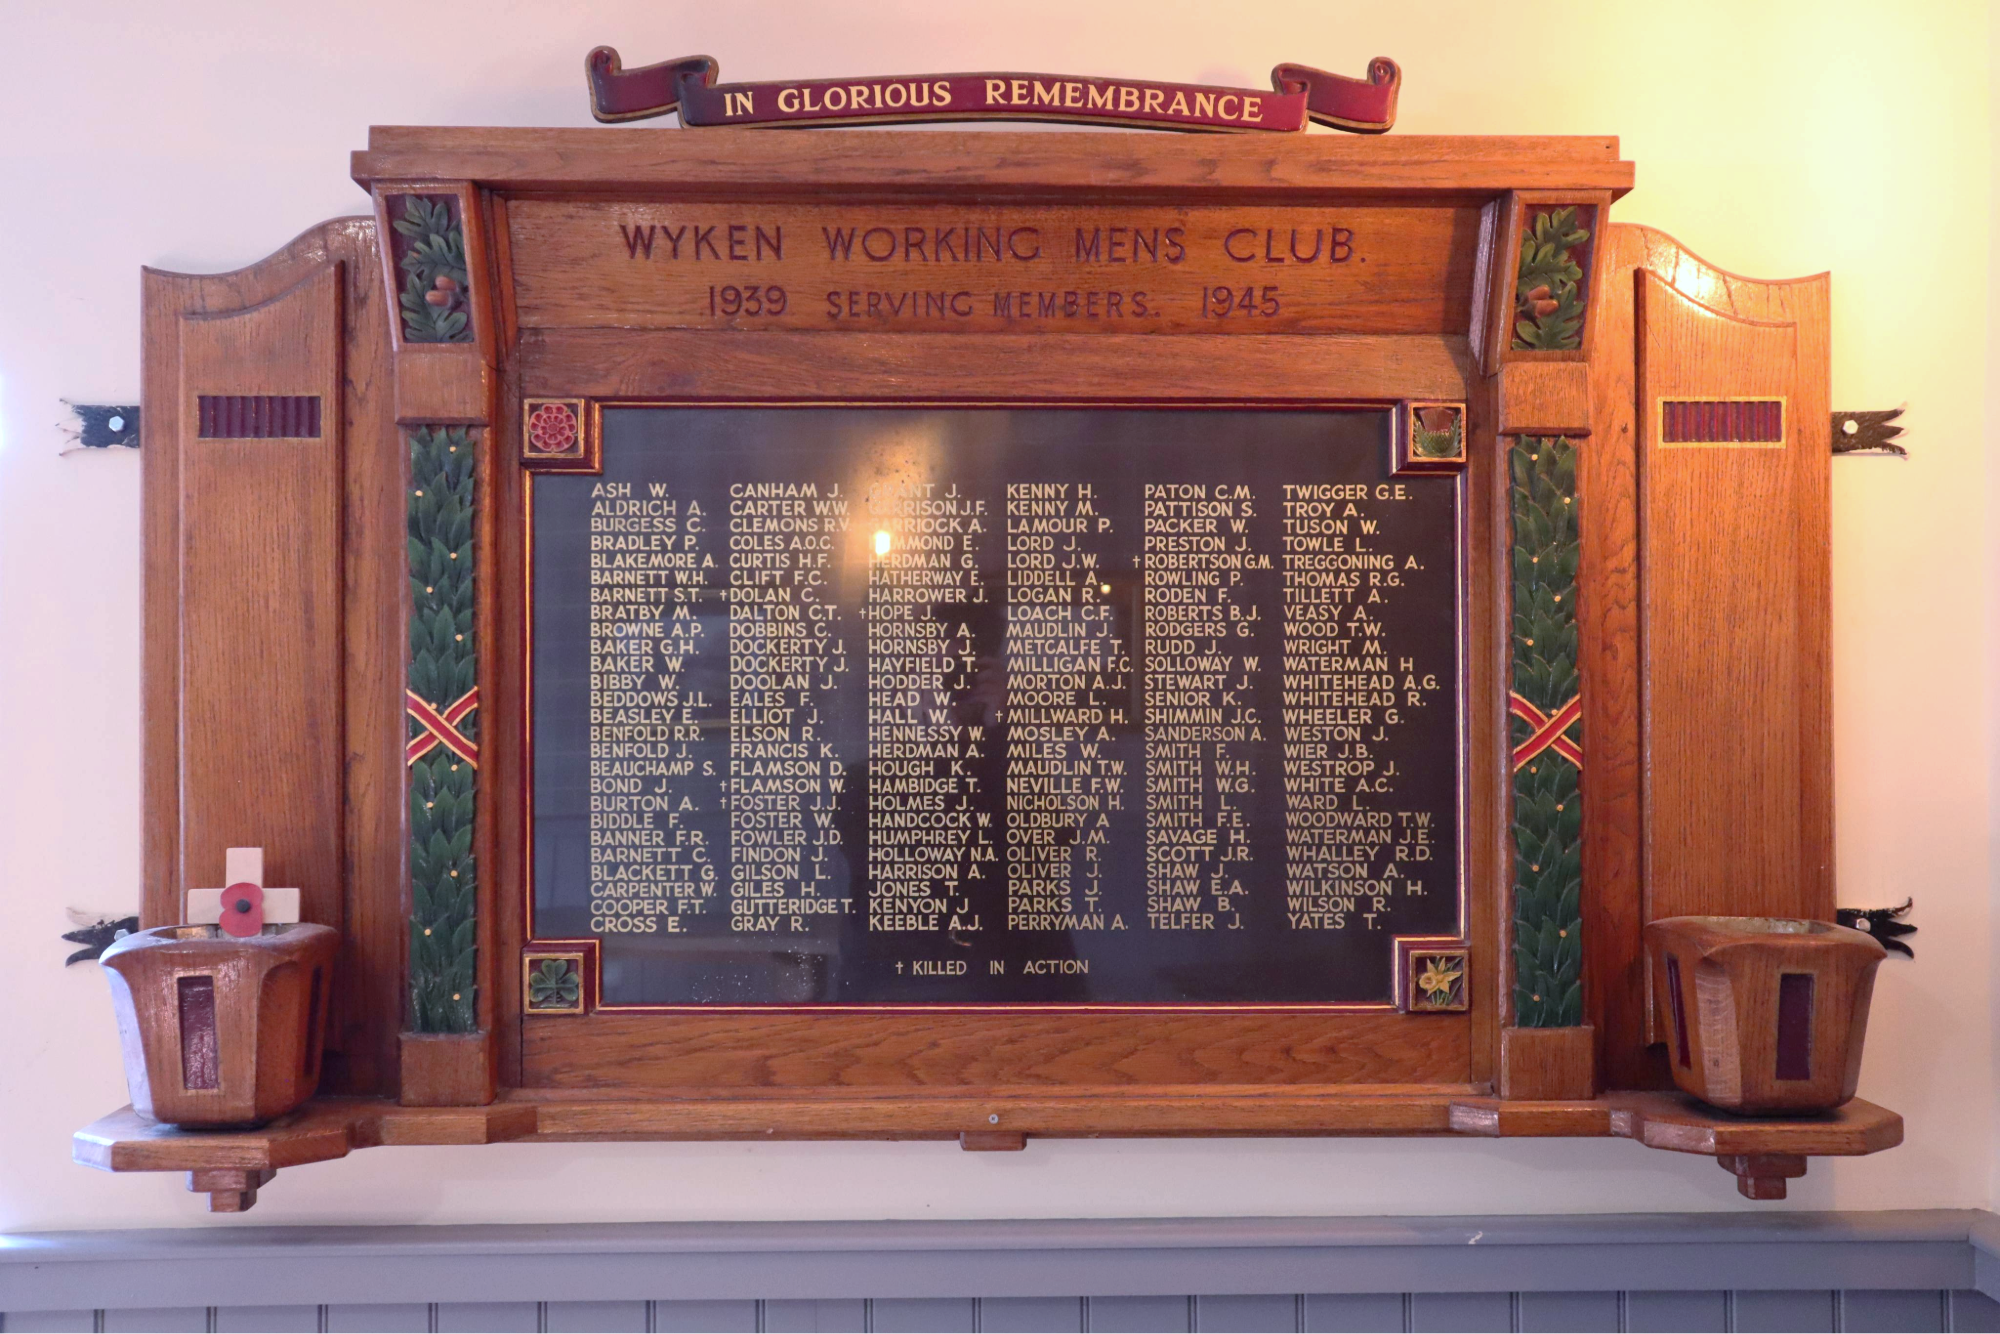 IN GLORIOUS REMEMBRANCE
WYKEN WORKING MENS CLUB.
1939 SERVING MEMBERS. 1945
ASH W.
ALDRICH A.
BURGESS C.
BRADLEY P.
BLAKEMORE A.
BARNETT W.H.
BARNETT S.T.
BRATBY M.
BROWNE A.P.
BAKER G.H.
BAKER W.
BIBBY W.
BEDDOWS J.L.
BEASLEY E.
BENFOLD R.R.
BENFOLD J.
BEAUCHAMP S.
BOND J.
BURTON A.
BIDDLE F.
BANNER F.R.
BARNETT C.
BLACKETT G.
CARPENTER W.
COOPER F.T.
CROSS E.
CANHAM J.
CARTER W.W.
CLEMONS R.V.
COLES A.O.C.
CURTIS H.F.
CLIFT F.C.
†DOLAN C.
DALTON C.T.
DOBBINS C.
DOCKERTY J.
DOCKERTY J.
DOOLAN J.
EALES F.
ELLIOT J.
ELSON R.
FRANCIS K.
FLAMSON D.
†FLAMSON W.
†FOSTER J.J.
FOSTER W.
FOWLER J.D.
FINDON J.
GILSON L.
GILES H.
GUTTERIDGE T.
GRAY R.
J.
J.F.
A.
E.
HERDMAN G.
HATHERWAY E.
HARROWER J.
†HOPE J.
HORNSBY A.
HORNSBY J.
HAYFIELD T.
HODDER J.
HEAD W.
HALL W.
HENNESSY W.
HERDMAN A.
HOUGH K.
HAMBIDGE T.
HOLMES J.
HANDCOCK W.
HUMPHREY L.
HOLLOWAY N.A.
HARRISON A.
JONES T.
KENYON J
KEEBLE A.J.
KENNY H.
KENNY M.
LAMOUR P.
LORD J.
LORD J.W.
LIDDELL A.
LOGAN R.
LOACH C.F.
MAUDLIN J.
METCALFE T.
MILLIGAN F.C.
MORTON A.J.
MOORE L.
†MILLWARD H.
MOSLEY A.
MILES W.
MAUDLIN T.W.
NEVILLE F.W.
NICHOLSON H.
OLDBURY A
OVER J.M.
OLIVER R.
OLIVER J.
PARKS J.
PARKS T.
PERRYMAN A.
PATON C.M.
PATTISON S.
PACKER W.
PRESTON J.
†ROBERTSON G.M.
ROWLING P.
RODEN F.
ROBERTS B.J.
RODGERS G.
RUDD J.
SOLLOWAY W.
STEWART J.
SENIOR K.
SHIMMIN J.C.
SANDERSON A.
SMITH F.
SMITH W.H.
SMITH W.G.
SMITH L.
SMITH F.E.
SAVAGE H.
SCOTT J.R.
SHAW J.
SHAW E.A.
SHAW B.
TELFER J.
TWIGGER G.E.
TROY A.
TUSON W.
TOWLE L.
TREGGONING A.
THOMAS R.G.
TILLETT A.
VEASY A.
WOOD T.W.
WRIGHT M.
WATERMAN H
WHITEHEAD A.G.
WHITEHEAD R.
WHEELER G.
WESTON J.
WIER J.B.
WESTROP J.
WHITE A.C.
WARD L.
WOODWARD T.W.
WATERMAN J.E.
WHALLEY R.D.
WATSON A.
WILKINSON H.
WILSON R.
YATES T.
† KILLED IN ACTION